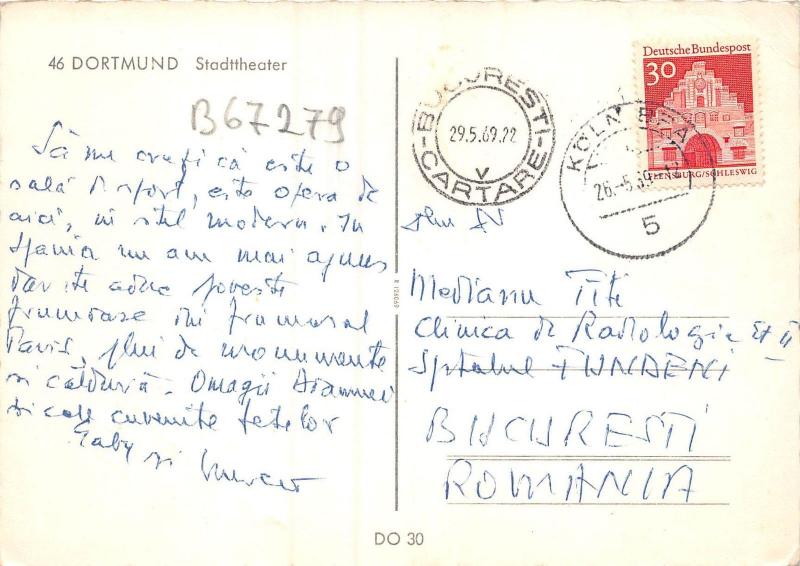 46 DORTMUND Stadttheater
B67279
Să nu crezi că este o
sală de sport, este opera de
aici, în stil modern. In
Spania nu am mai ajuns
dar te aduc poveste
frumoase din frumosul
Paris, plin de monumente
și căldură. Omagii Doamnei
și cele cuvenite fetelor
Gaby și
BUCURESTI
29.5.69.22
V
CARTARE
KÖLN
26.-5.69
5
Deutsche Bundespost
30
FLENSBURG/SCHLESWIG
Medianu Titi
Clinica de Radiologie Et II
Spitalul FUNDENI
BUCURESTI
ROMANIA
DO 30